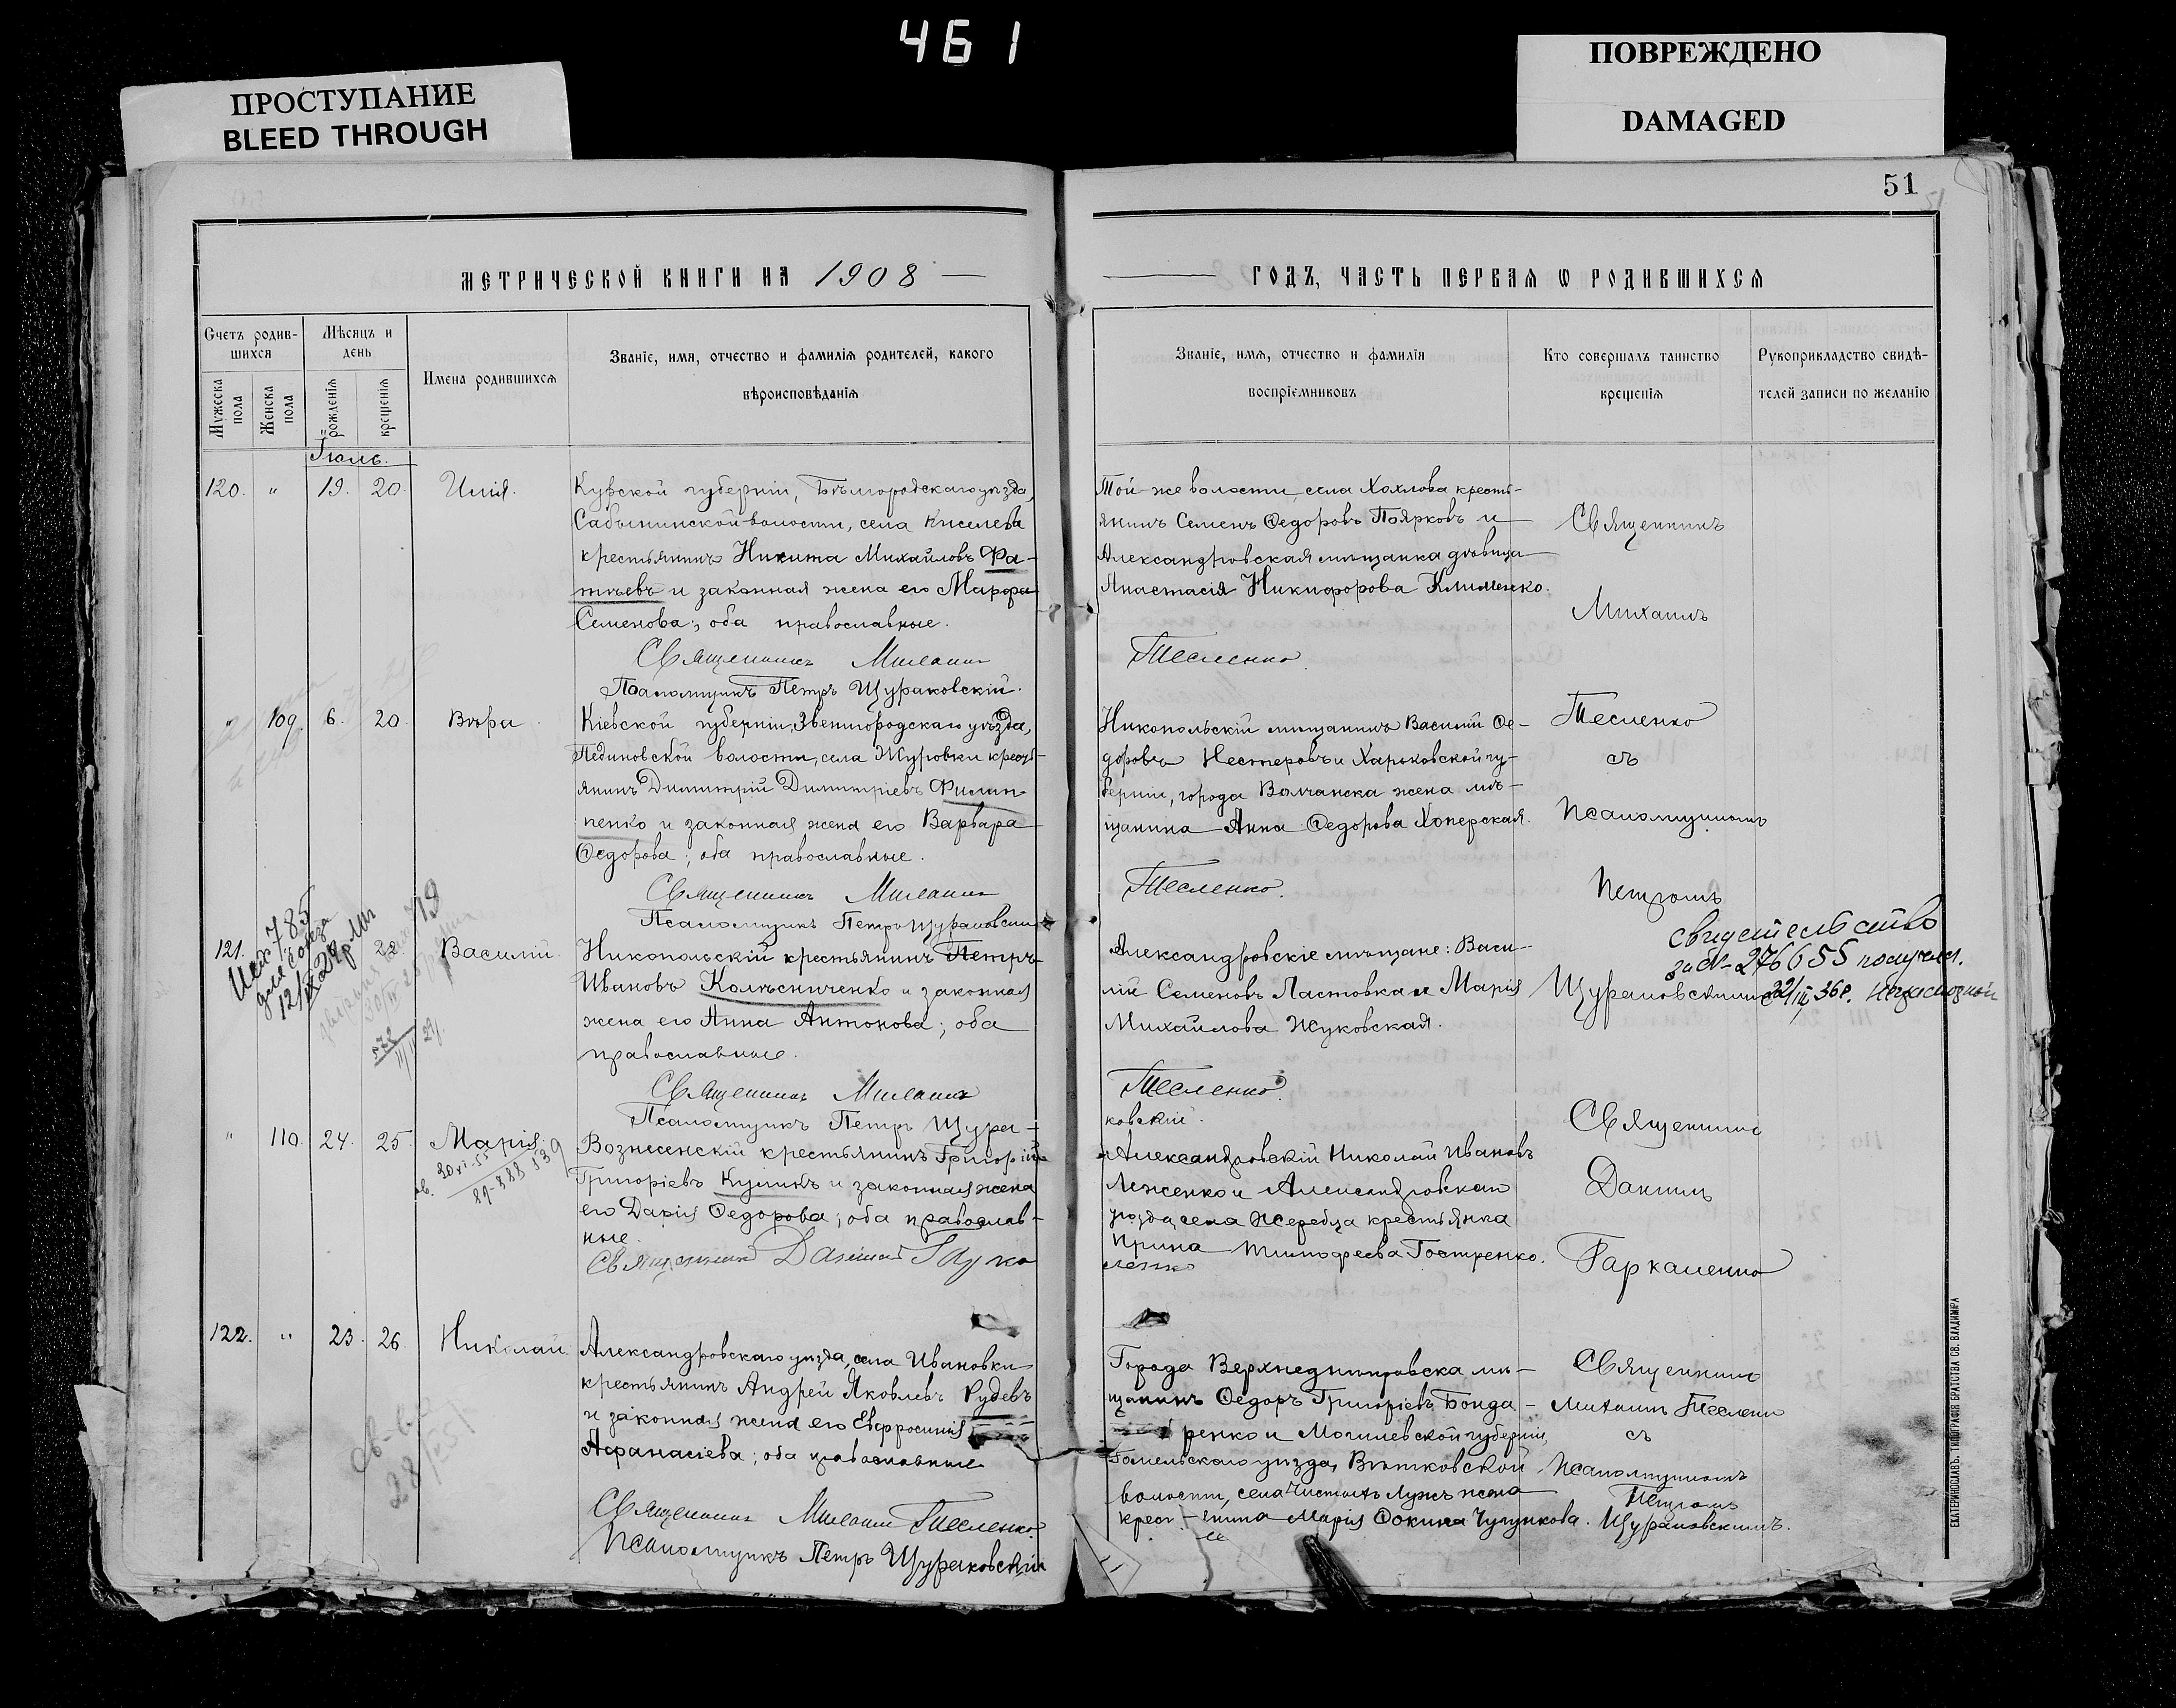 461
ПРОСТУПАНИЕ
BLEED THROUGH
ПОВРЕЖДЕНО
DAMAGED
51
МЕТРИЧЕСКОЙ КНИГИ НА 1908
ГОДЪ, ЧАСТЬ ПЕРВАЯ Ѡ РОДИВШИХСЯ
Счетъ родив-
шихся
Мѣсяцъ и
день
Мужеска
пола
Женска
пола
рожденія
крещенія
Имена родившихся
Званіе, имя, отчество и фамилія родителей, какого
вѣроисповѣданія
Званіе, имя, отчество и фамилія
воспріемниковъ
Кто совершалъ таинство
крещенія
Рукоприкладство свидѣ-
телей записи по желанію
Іюль.
120. " 19. 20. Илія.
Курской губерніи, Бѣлгородскаго уѣзда,
Сабынинской волости, села Киселева
крестьянинъ Никита Михайловъ Фа-
тѣевъ и законная жена его Марфа
Семенова; оба православные.
Священникъ Михаилъ
Псаломщикъ Петръ Щураковскій.
Той же волости села Хохлова кресть-
янинъ Семенъ Ѳедоровъ Поярковъ и
Александровская мѣщанка дѣвица
Анастасія Никифорова Клименко.
Тесленко.
Священникъ
Михаилъ
Тесленко
съ
Псаломщикомъ
Петромъ
Щураковскимъ
" 109. 6. 20. Вѣра.
Кіевской губерніи, Звенигородскаго уѣзда,
Пединовской волости, села Журовки кресть-
янинъ Димитрій Димитріевъ Филип-
пенко и законная жена его Варвара
Ѳедорова; оба православные.
Священникъ Михаилъ
Псаломщикъ Петръ Щураковскій
Никопольскій мѣщанинъ Василій Ѳе-
доровъ Нестеровъ и Харьковской гу-
берніи, города Волчанска жена мѣ-
щанина Анна Ѳедорова Хоперская.
Тесленко.
121. 22. Василій.
785
12/IX 29
Никопольскій крестьянинъ Петръ
Ивановъ Колѣсниченко и законная
жена его Анна Антонова; оба
православные.
Священникъ Михаилъ
Псаломщикъ Петръ Щура-
Александровскіе мѣщане: Васи-
лій Семеновъ Ластовка и Марія
Михайлова Жуковская.
Тесленко.
ковскій.
свидетельство
за № 276655 получен.
" 110. 24. 25. Марія.
89-888 539
Вознесенскій крестьянинъ Григорій
Григоріевъ Куликъ и законная жена
его Дарія Ѳедорова; оба православ-
ные.
Священникъ Даніилъ Гарка
Александровскій Николай Ивановъ
Леженко и Александровскаго
уѣзда, села Жеребца крестьянка
Ирина Тимофеева Гостренко.
ленко
Священникъ
Даніилъ
Гаркаленко
122. " 23. 26. Николай.
Александровскаго уѣзда, села Ивановки
крестьянинъ Андрей Яковлевъ Рудевъ
и законная жена его Евфросинія
Афанасіева; оба православные
Священникъ Михаилъ Тесленко.
Псаломщикъ Петръ Щураковскій
Города Верхнеднѣпровска мѣ-
щанинъ Ѳедоръ Григоріевъ Бонда-
ренко и Могилевской губерніи,
Гомельскаго уѣзда, Вѣтковской
волости, села Чистыхъ Лужъ жена
крест-янина Марія Фокина Чугункова.
Священникъ
Михаилъ Тесленко
съ
Псаломщикомъ
Петромъ
Щураковскимъ.
ЕКАТЕРИНОСЛАВЪ. ТИПОГРАФІЯ БРАТСТВА СВ. ВЛАДИМІРА